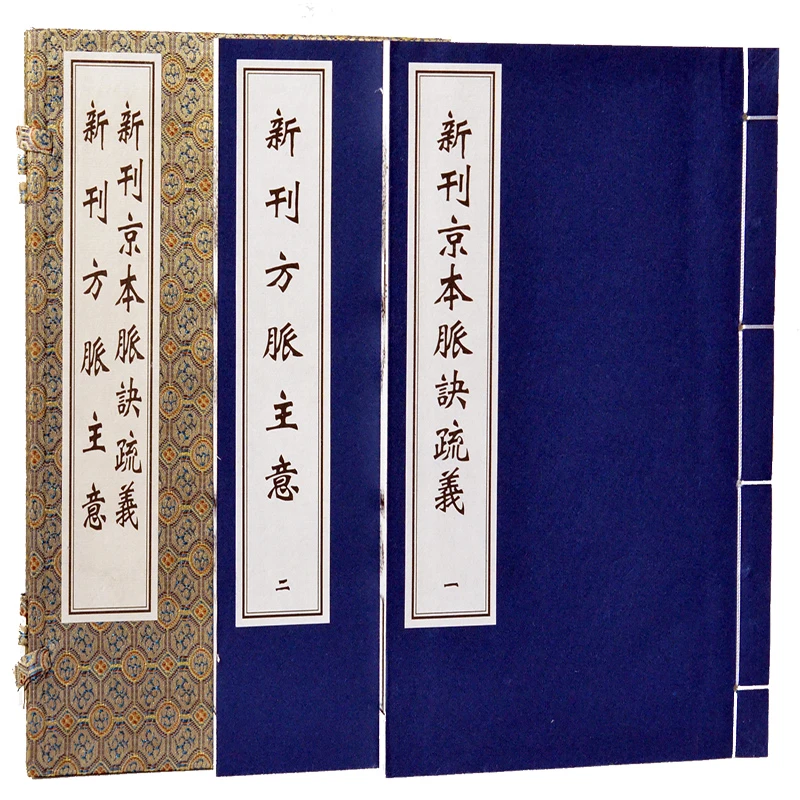 新刊京本脈訣疏義
新刊方脈主意
新刊方脈主意
二
新刊京本脈訣疏義
一